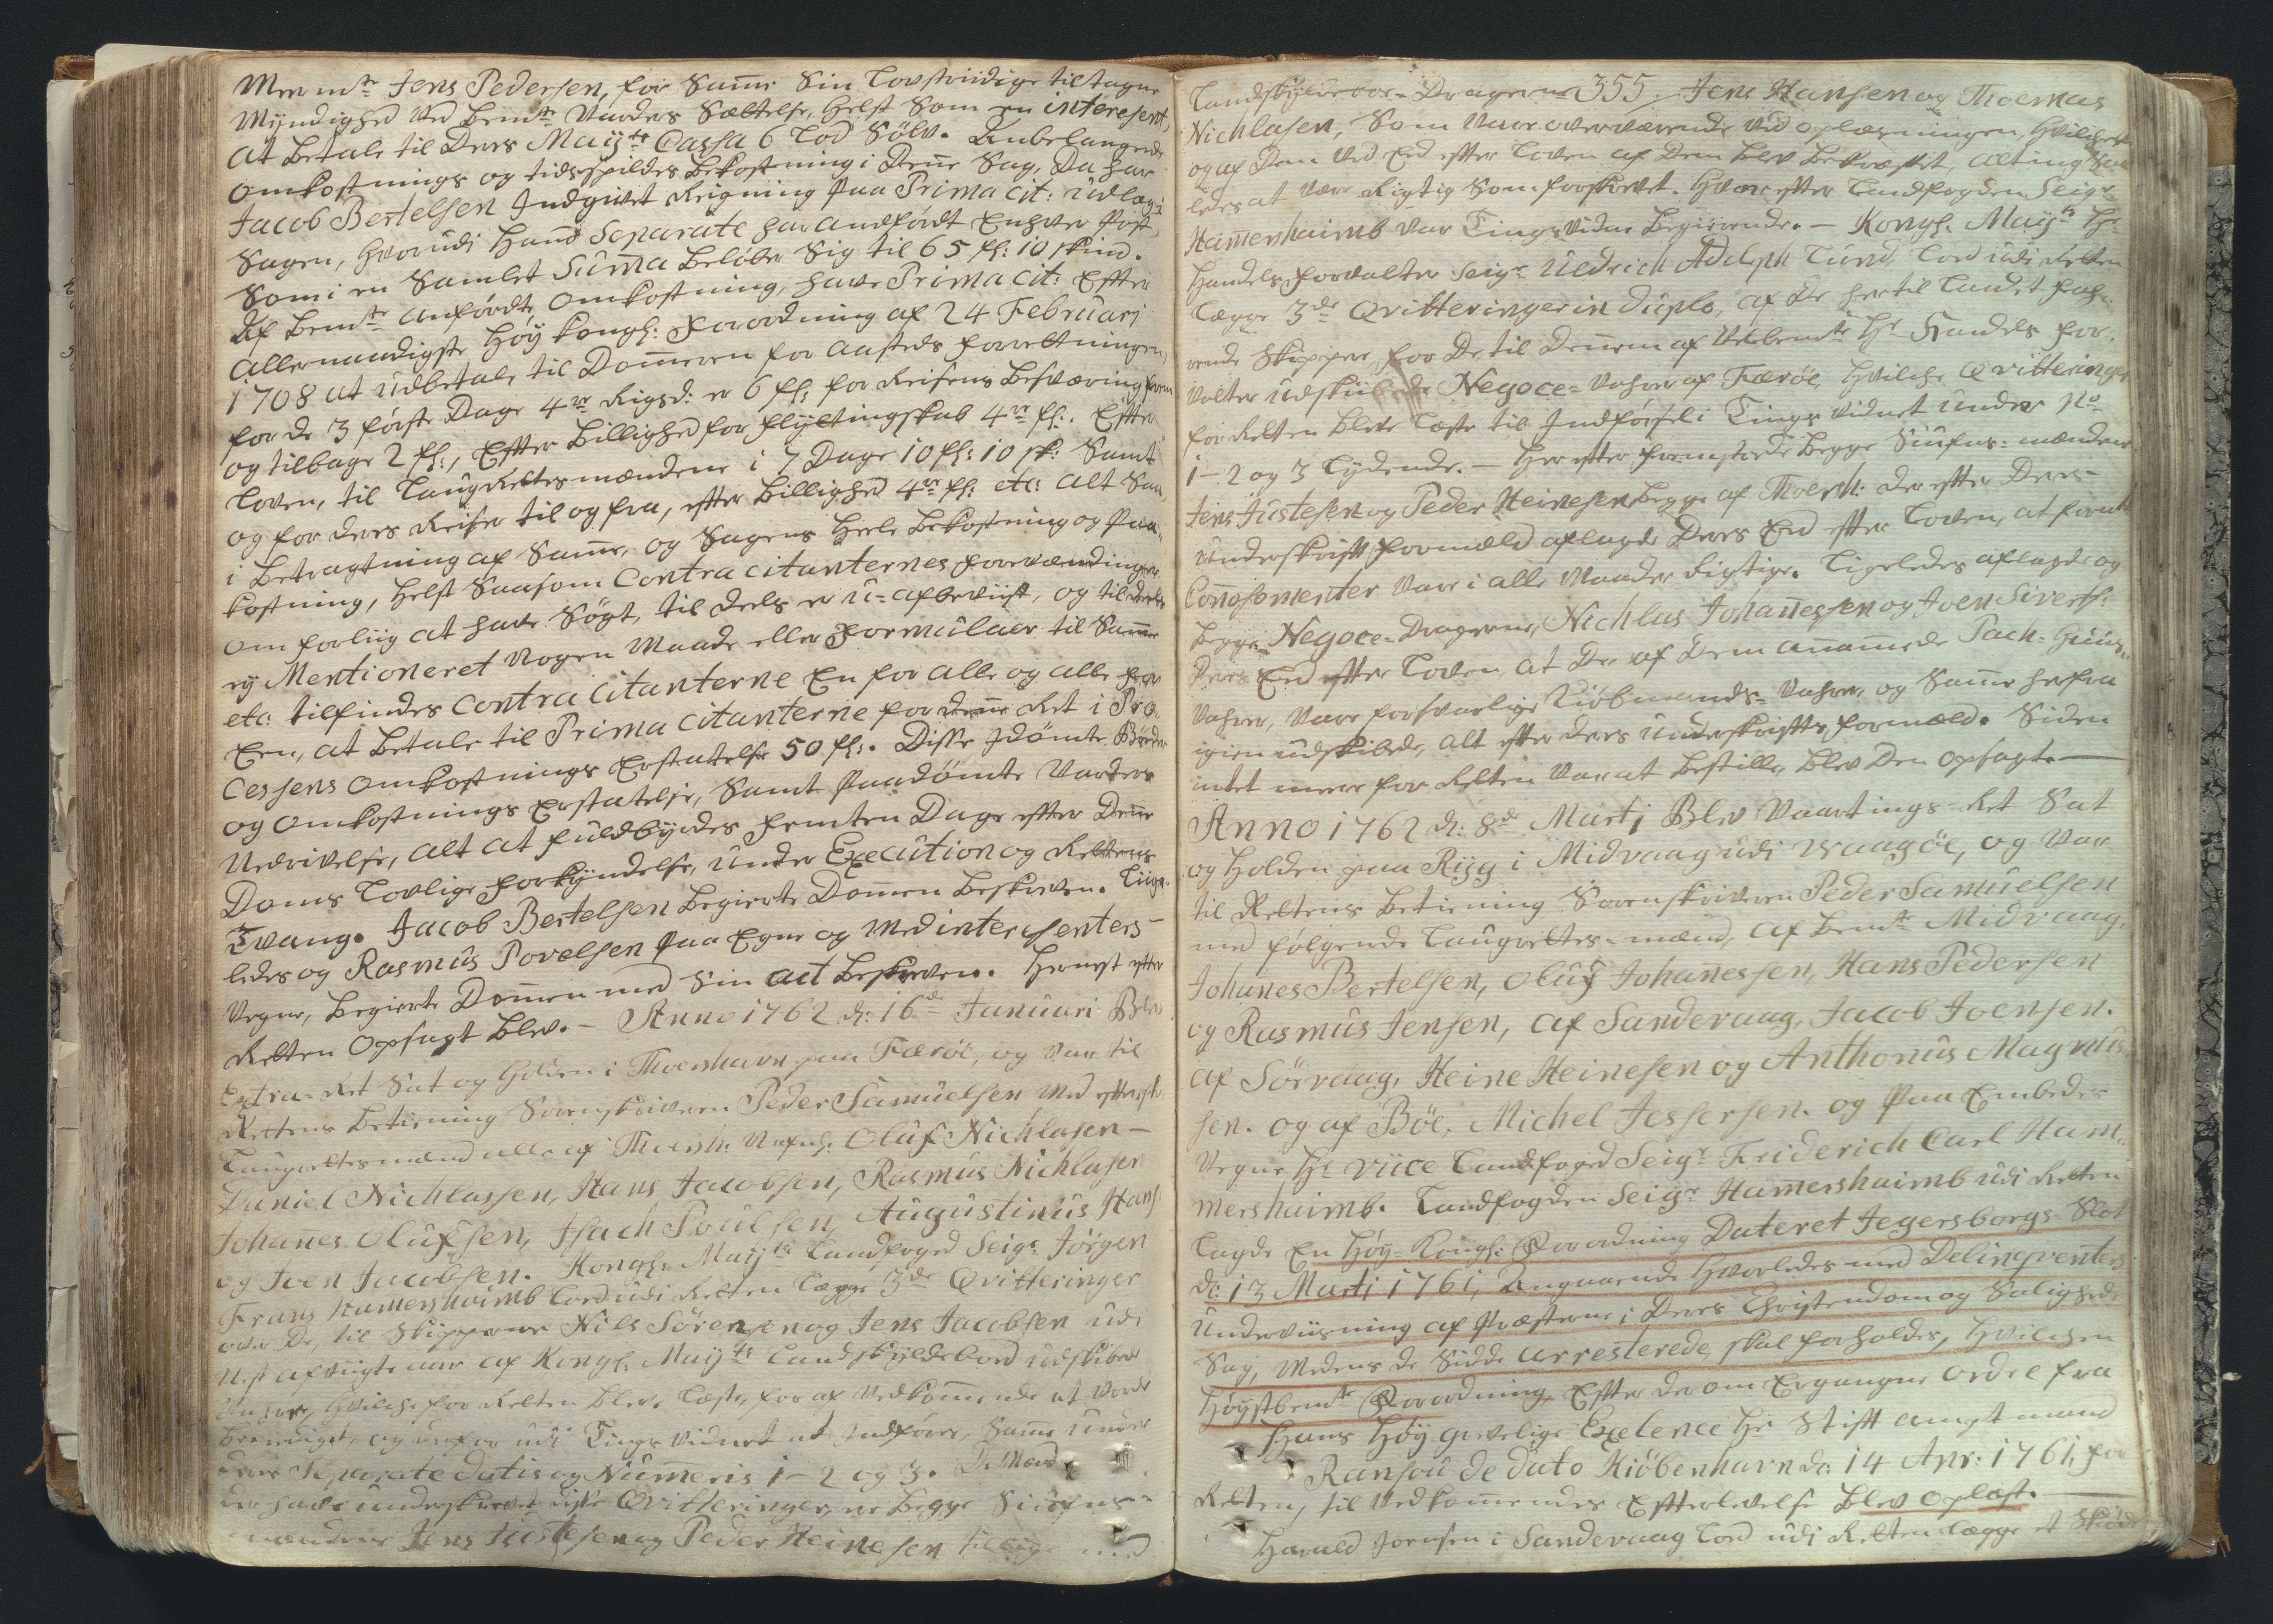 Men mte Jens Pedersen, for Samme Sin Lovstriidige tiltagne
Myndighed Ved Bemte Varders Sættelse, Helst Som en interesent,
at Betale til Deres Mayts Cassa 6 Lod Sölv. Anbelangende
omkostnings og tidsspildes Bekostning i Denne Sag, Da har
Jacob Bertelsen Indgivet Reigning paa Prima cit: udlæg i
Sagen, hvorudi Hand Separate har andfördt Enhver Post,
Som i en Samlet Suma Belöber Sig til 65 fl: 10 skind.
Af Bemte anfördte omkostning, have Prima cit: Efter
allernaadigste Höy kongl: Forordning af 24 Februarj
1708 at udbetale til Dommeren for aasteds forretningen,
for de 3 förste Dage 4re Rigsd: er 6 fl: for Reisens Besværing frem
og tilbage 2 fl:, Efter Billighed for flyttingskab 4re fl:. Efter
Loven, til Laugrettesmændene i 7 Dage 10 fl: 10 sk: Samt
og for deres Reiser til og fra, efter Billighed 4re fl: etc: alt Saa
i Betragtning af Samme, og Sagens Heele Bekostning og Paa-
kostning, Helst Saasom Contra citanternes forevendinger
om forliig at have Sögt, til deels er u-afbeviist, og til deels
ey Mentioneret Nogen Maade eller Formulaer til Samme
etc: tilfindes Contra citanterne En for alle og alle for
Een, at Betale til Prima citanterne for denne Ret i Pro-
cessens omkostnings Erstatelse 50 fl:. Disse Idömte Böder
og omkostnings Erstatelse, Samt Paadömte Varders
Nedrivelse, alt at fuldbyrdes femten Dage efter Denne
Doms Lovlige forkyndelse, under Execution og Rettens
Tvang. Jacob Bertelsen Begierte Dommen Beskreven. Liige-
ledes og Rasmus Povelsen paa Egne og Medinteresenters
Vegne, Begierte Dommen med Sin act Beskreven. Hernest efter
Retten Opsagt Blev. – Anno 1762 d: 16de Januari Blev
Extra-Ret Sat og Holden i Thorshavn paa Færöe, og Var til
Rettens Betiening Sorenskriveren Peder Samuelsen Med efterskr:
Laugrettesmænd alle af Thorsh: Nafnl: Oluf Nichlasen –
Daniel Nichlassen, Hans Jacobsen, Rasmus Nichlasen
Johanes Olufsen, Isach Poulsen, Augustinus Hans:
og Joen Jacobsen. Kongl: Mayts Landfoged Seigr Jörgen
Frans Hamershaimb Lod udi Retten Lægge 3de Qvitteringer
over De, til Skipperne Nils Sörensen og Jens Jacobsen udi
Nest afvigte aar af Kongl: Mayts Landskyldebod udskibede
Vahrer, Hvilche for Retten Bleve Læste, for af Vedkommende at Vorde
og derfor udi Tings Vidnet at Indföre, Samme under
deres Separate datis og Numeris 1 – 2 og 3. De Mænd
der have underskrevet disse Qvitteringer, er Begge
mændene Jens Justesen og Peder Heinesen tillige med
Landskylvare-Dragerne 355. Jens Hansen og Thoemas
Nichlasen, Som Vare overværende Ved oplæsningen, Hvilchet
og af Dem Ved Eed efter Loven af Dem blev Bekræftet, alting Saa-
ledes at Være Rigtig Som forskrevet. Hvorefter Landfogden Seigr
Hamershaimb Var Tingsvidne Begierende. – Kongl: Mayts Hr
Handels forvalter Seigr Uldrich Adolph Lund Lod udi Retten
Lægge 3de Qvitteringer in duplo, af De her til Landet fah-
rende Skipper, for De til Dennem af Velbemte Hr Handels for-
valter Udskibede Negoce-Vahrer af Færöe, Hvilche Qvitteringer
for Retten Bleve Læste til Indförsel i Tings Vidnet under No
1 – 2 og 3 Lydende. – Her efter fremstode Begge Siufns-mændene
Jens Justesen og Peder Heinesen Begge af Thorsh: Der efter Deres
underskrifts formæld aflagde Deres Eed efter Loven, at forte
Connosementer Vare i alle Maader Rigtige. Ligeledes aflagde og
begge Negoce-Dragerne, Nichlas Johannessen og Joen Siverts:
Deres Eed efter Loven, at De af Dem anammede Pach-Huus-
Vahrer, Vare forsvarlige Kiöbmands-Vahre, og Samme herfra
igien udskibede, alt efter deres Underskrifts formæld. Siden
intet mere for Retten Var at Bestille, Blev Den opsagt. —
Anno 1762 d: 8de Martj Blev Vaartings-Ret Sat
og Holden paa Ryg i Midvaag udi Waagöe, og Var
til Rettens Betiening Sorenskriveren Peder Samuelsen
med fölgende Laugrettes-mænd, af Bemte Midvaag,
Johanes Bertelsen, Oluf Johanessen, Hans Pedersen
og Rasmus Jensen, af Sandevaag, Jacob Joensen.
af Sörvaag, Heine Heinesen og Anthonius Magnus-
sen. og af Böe, Michel Jessersen. og Paa Embeds
Vegne Hr viice Landfoged Seigr Friderich Carl Ham-
mershaimb. Landfogden Seigr Hamershaimb udi Retten
Lagde En Höy-Kongl: Forordning Dateret Jegersborgs-Slot
d: 13 Marti 1761, Angaaende Hvorledes med Delinqventers
underviisning af Præsterne i Deres Christendom og Saligheds
Sag, Medens de Sidde arresterede, skal forholdes, Hvilchen
Höystbemte Forordning, Efter der om Ergangne ordre fra
Hans Höy grevelige Exelence Hr Stift amptmand
Ransou de dato Kiöbenhavn d: 14 Apr: 1761, for
Retten, til Vedkommendes Efterlevelse Blev oplæst. —
Harald Joensen i Sandevaag Lod udi Retten Lægge et Sköde